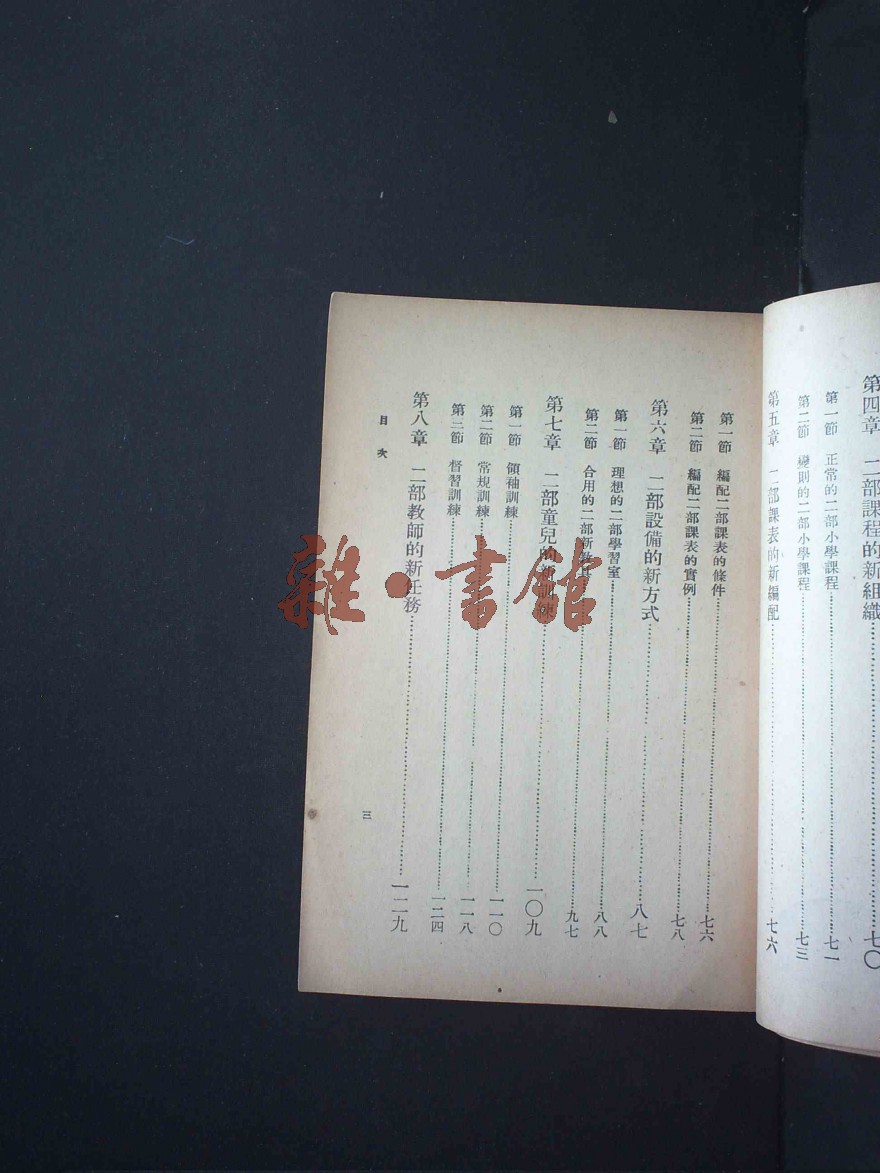 第四章 二部課程的新組織……七〇
第一節 正常的二部小學課程……七一
第二節 變則的二部小學課程……七三
第五章 二部課表的新編配……七六
第一節 編配二部課表的條件……七六
第二節 編配二部課表的實例……七八
第六章 二部設備的新方式……八七
第一節 理想的二部學習室……八八
第二節 合用的二部新教……九七
第七章 二部童兒的新訓練……一〇九
第一節 領袖訓練……一一〇
第二節 常規訓練……一一八
第三節 督習訓練……一二四
第八章 二部教師的新任務……一二九
目次
三
雜·書館